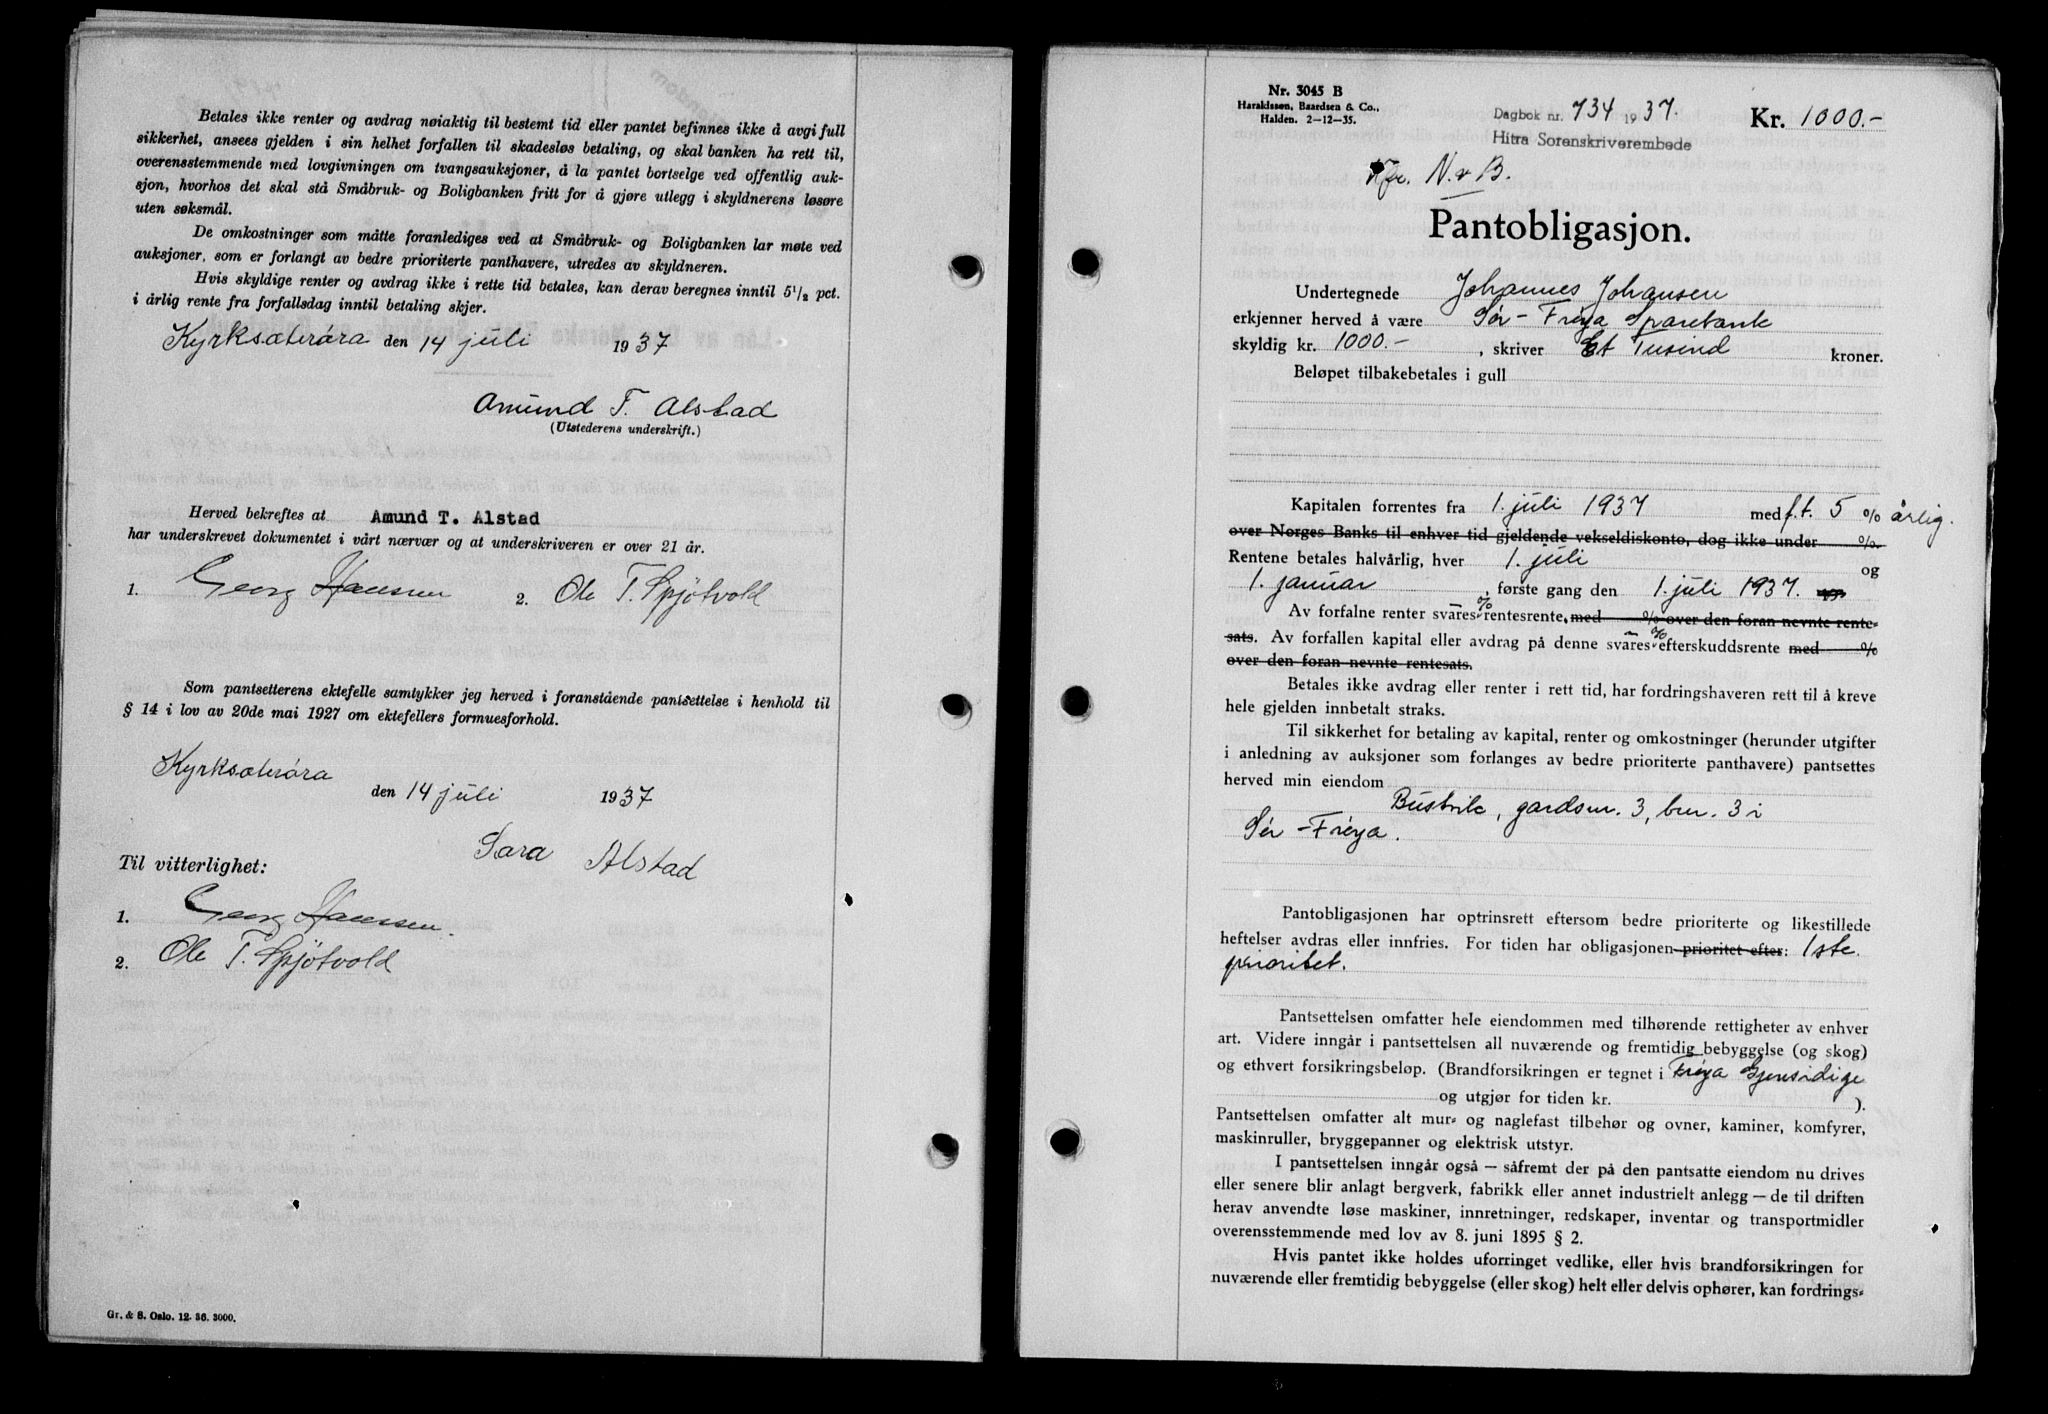 Betales ikke renter og avdrag nøiaktig til bestemt tid eller pantet befinnes ikke å avgi full
sikkerhet, ansees gjelden i sin helhet forfallen til skadesløs betaling, og skal banken ha rett til,
overensstemmende med lovgivningen om tvangsauksjoner, å la pantet bortselge ved offentlig auk-
sjon, hvorhos det skal stå Småbruk- og Boligbanken fritt for å gjøre utlegg i skyldnerens løsøre
uten søksmål.
De omkostninger som måtte foranlediges ved at Småbruk- og Boligbanken lar møte ved
auksjoner, som er forlangt av bedre prioriterte panthavere, utredes av skyldneren.
Hvis skyldige renter og avdrag ikke i rette tid betales, kan derav beregnes inntil 5½ pct.
i årlig rente fra forfallsdag inntil betaling skjer.
Kyrksæterøra den 14 juli 1937
Amund T. Alstad
(Utstederens underskrift.)
Herved bekreftes at Amund T. Alstad
har underskrevet dokumentet i vårt nærvær og at underskriveren er over 21 år.
1. Georg Hansen 2. Ole T. Spjøtvold
Som pantsetterens ektefelle samtykker jeg herved i foranstående pantsettelse i henhold til
§ 14 i lov av 20de mai 1927 om ektefellers formuesforhold.
Kyrksæterøra den 14 juli 1937
Sara Alstad
Til vitterlighet:
1. Georg Hanssen.
2. Ole T. Spjøtvold
Gr. & S. Oslo. 12. 36. 3000.
Nr. 3045 B
Haraldssen, Baardsen & Co.,
Halden. 2-12-35.
Dagbok nr. 734 1937.
Hitra Sorenskriverembede
Kr. 1000.-
N. v B.
Pantobligasjon.
Undertegnede Johannes Johansen
erkjenner herved å være Sør-Frøya Sparebank
skyldig kr. 1000.- , skriver Et Tusind kroner.
Beløpet tilbakebetales i gull
Kapitalen forrentes fra 1. juli 1937 med f.t. 5 % årlig.
over Norges Banks til enhver tid gjeldende vekseldiskonto, dog ikke under %.
Rentene betales halvårlig, hver 1. juli og
1. januar , første gang den 1. juli 1937.
Av forfalne renter svares - % rentesrente, med % over den foran nevnte rente-
sats. Av forfallen kapital eller avdrag på denne svares - % efterskuddsrente med %
over den foran nevnte rentesats.
Betales ikke avdrag eller renter i rett tid, har fordringshaveren rett til å kreve
hele gjelden innbetalt straks.
Til sikkerhet for betaling av kapital, renter og omkostninger (herunder utgifter
i anledning av auksjoner som forlanges av bedre prioriterte panthavere) pantsettes
herved min eiendom
Bustvik, gardsnr. 3, bnr. 3 i
Sør-Frøya.
Pantobligasjonen har optrinsrett eftersom bedre prioriterte og likestillede
heftelser avdras eller innfries. For tiden har obligasjonen prioritet efter: 1ste
prioritet.
Pantsettelsen omfatter hele eiendommen med tilhørende rettigheter av enhver
art. Videre inngår i pantsettelsen all nuværende og fremtidig bebyggelse (og skog)
og ethvert forsikringsbeløp. (Brandforsikringen er tegnet i Frøya Gjensidige
og utgjør for tiden kr. ).
Pantsettelsen omfatter alt mur- og naglefast tilbehør og ovner, kaminer, komfyrer,
maskinruller, bryggepanner og elektrisk utstyr.
I pantsettelsen inngår også — såfremt der på den pantsatte eiendom nu drives
eller senere blir anlagt bergverk, fabrikk eller annet industrielt anlegg — de til driften
herav anvendte løse maskiner, innretninger, redskaper, inventar og transportmidler
overensstemmende med lov av 8. juni 1895 § 2.
Hvis pantet ikke holdes uforringet vedlike, eller hvis brandforsikringen for
nuværende eller fremtidig bebyggelse (eller skog) helt eller delvis ophører, kan fordrings-